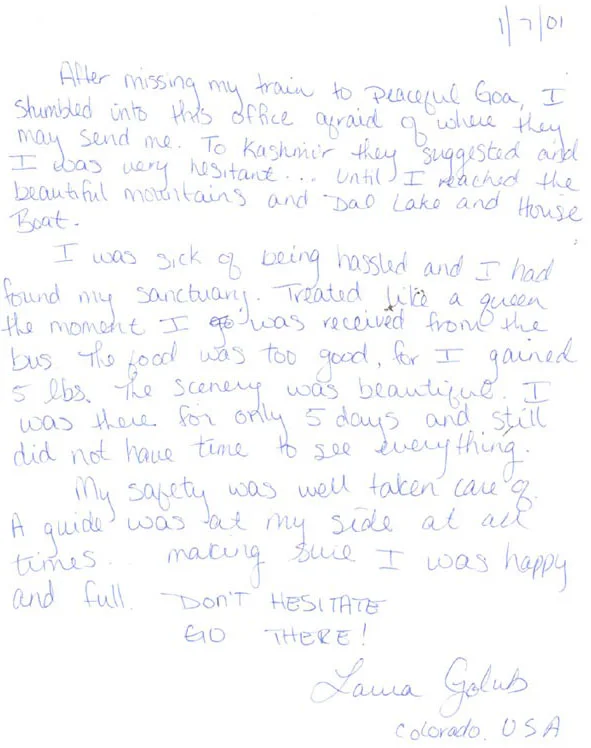 1/7/01
After missing my train to peaceful Goa, I
stumbled into this office afraid of where they
may send me. To Kashmir they suggested and
I was very hesitant... until I reached the
beautiful mountains and Dal Lake and House
Boat.
I was sick of being hassled and I had
found my sanctuary. Treated like a queen
the moment I was received from the
bus. The food was too good, for I gained
5 lbs. The scenery was beautiful. I
was there for only 5 days and still
did not have time to see everything.
My safety was well taken care of.
A guide was at my side at all
times... making sure I was happy
and full. DON'T HESITATE
GO THERE!
Laura Golub
Colorado, USA